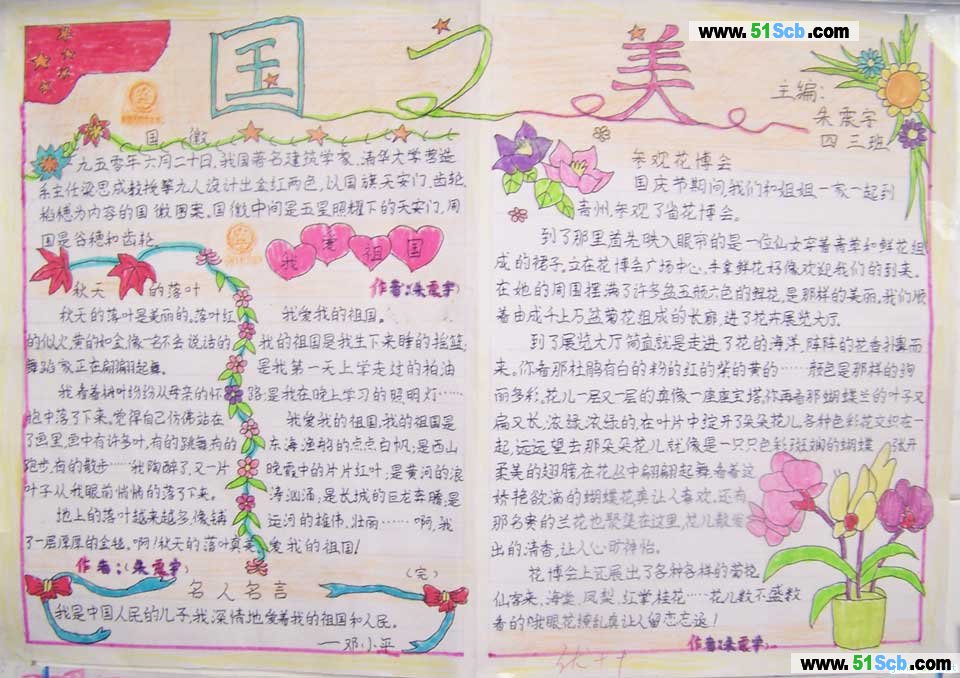 www.51Scb.com
国之美
主编:
朱震宇
四三班
国徽
一九五零年六月二十日,我国著名建筑学家、清华大学营造
系主任梁思成教授等九人设计出金红两色,以国旗天安门、齿轮、
稻穗为内容的国徽图案。国徽中间是五星照耀下的天安门,周
围是谷穗和齿轮。
秋天的落叶
秋天的落叶是美丽的。落叶红
的似火,黄的如金,像一名不会说话的
舞蹈家正在翩翩起舞。
我看着树叶纷纷从母亲的怀
抱中落了下来。觉得自己仿佛站在
了画里,画中有许多叶,有的跳舞,有的
跑步,有的散步……我陶醉了,又一片
叶子从我眼前悄悄的落了下来。
地上的落叶越来越多,像铺
了一层厚厚的金毯。啊!秋天的落叶真美
作者:(朱震宇)
我爱祖国
作者:(朱震宇)
我爱我的祖国。
我的祖国是我生下来睡的摇篮;
是我第一天上学走过的柏油
路;是我在晚上学习的照明灯……
我爱我的祖国,我的祖国是
东海渔船的点点白帆;是西山
晚霞中的片片红叶;是黄河的浪
涛汹涌;是长城的巨龙奔腾;是
运河的雄伟、壮丽……啊,我
爱我的祖国!
(完)
名人名言
我是中国人民的儿子,我深情地爱着我的祖国和人民。
——邓小平
参观花博会
国庆节期间,我们和姐姐一家一起到
青州,参观了省花博会。
到了那里首先映入眼帘的是一位仙女穿着青菜和鲜花组
成的裙子。立在花博会广场中心,手拿鲜花好像欢迎我们的到来。
在她的周围摆满了许多盆五颜六色的鲜花,是那样的美丽。我们顺
着由成千上万盆菊花组成的长廊,进了花卉展览大厅。
到了展览大厅简直就是走进了花的海洋,阵阵的花香扑鼻而
来。你看那杜鹃有白的粉的红的紫的黄的……颜色是那样的绚
丽多彩。花儿一层又一层的真像一座座宝塔。你再看那蝴蝶兰的叶子又
扁又长,浓绿、浓绿的,在叶片中绽开了朵朵花儿,各种色彩花交织在一
起,远远望去那朵朵花儿就像是一只只色彩斑斓的蝴蝶张开
柔美的翅膀在花丛中翩翩起舞。看着这
娇艳欲滴的蝴蝶花真让人喜欢,还有
那名贵的兰花也聚集在这里,花儿散发
出的清香,让人心旷神怡。
花博会上还展出了各种各样的菊花、
仙客来、海棠、凤梨、红掌、桂花……花儿数不盛数
看的我眼花缭乱真让人留恋忘返!
作者:(朱震宇)
优++
www.51Scb.com